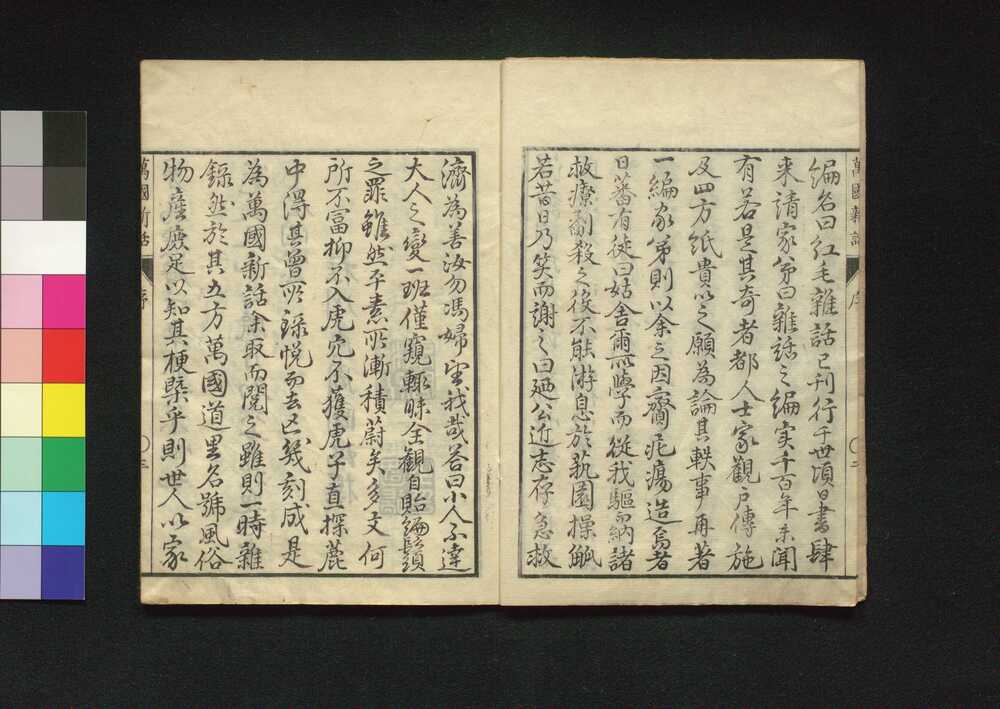 編名曰紅毛雜話已刊行于世頃日書肆
来請家弟曰雜話之編実千百年未聞
有若是其奇者都人士家觀戸傳施
及四方紙貴以之願為論其軼事再著
一編家弟則以余之因齋
日蕃有徒曰姑舎爾所學而從我驅納諸
救療劀殺之後不能游息於藝園操觚
若昔日乃笑而謝之曰廼公近志存急救
濟為善汝勿馮婦望我哉答曰小人不達
大人之變一班僅窺輒昧全觀自貽編鬚
之罪雖然平素所漸積蔚矣多文何
所不冨抑不入虎穴不獲虎子直探麓
中得其曾所錄悦而去亡幾刻成是
為萬國新話余取而閲之雖則一時雜
錄然於其五方萬國道里名號風俗
物産庶足以知其梗槩乎則世人以家
萬國新話
序
〇三
萬國新話
序
〇二